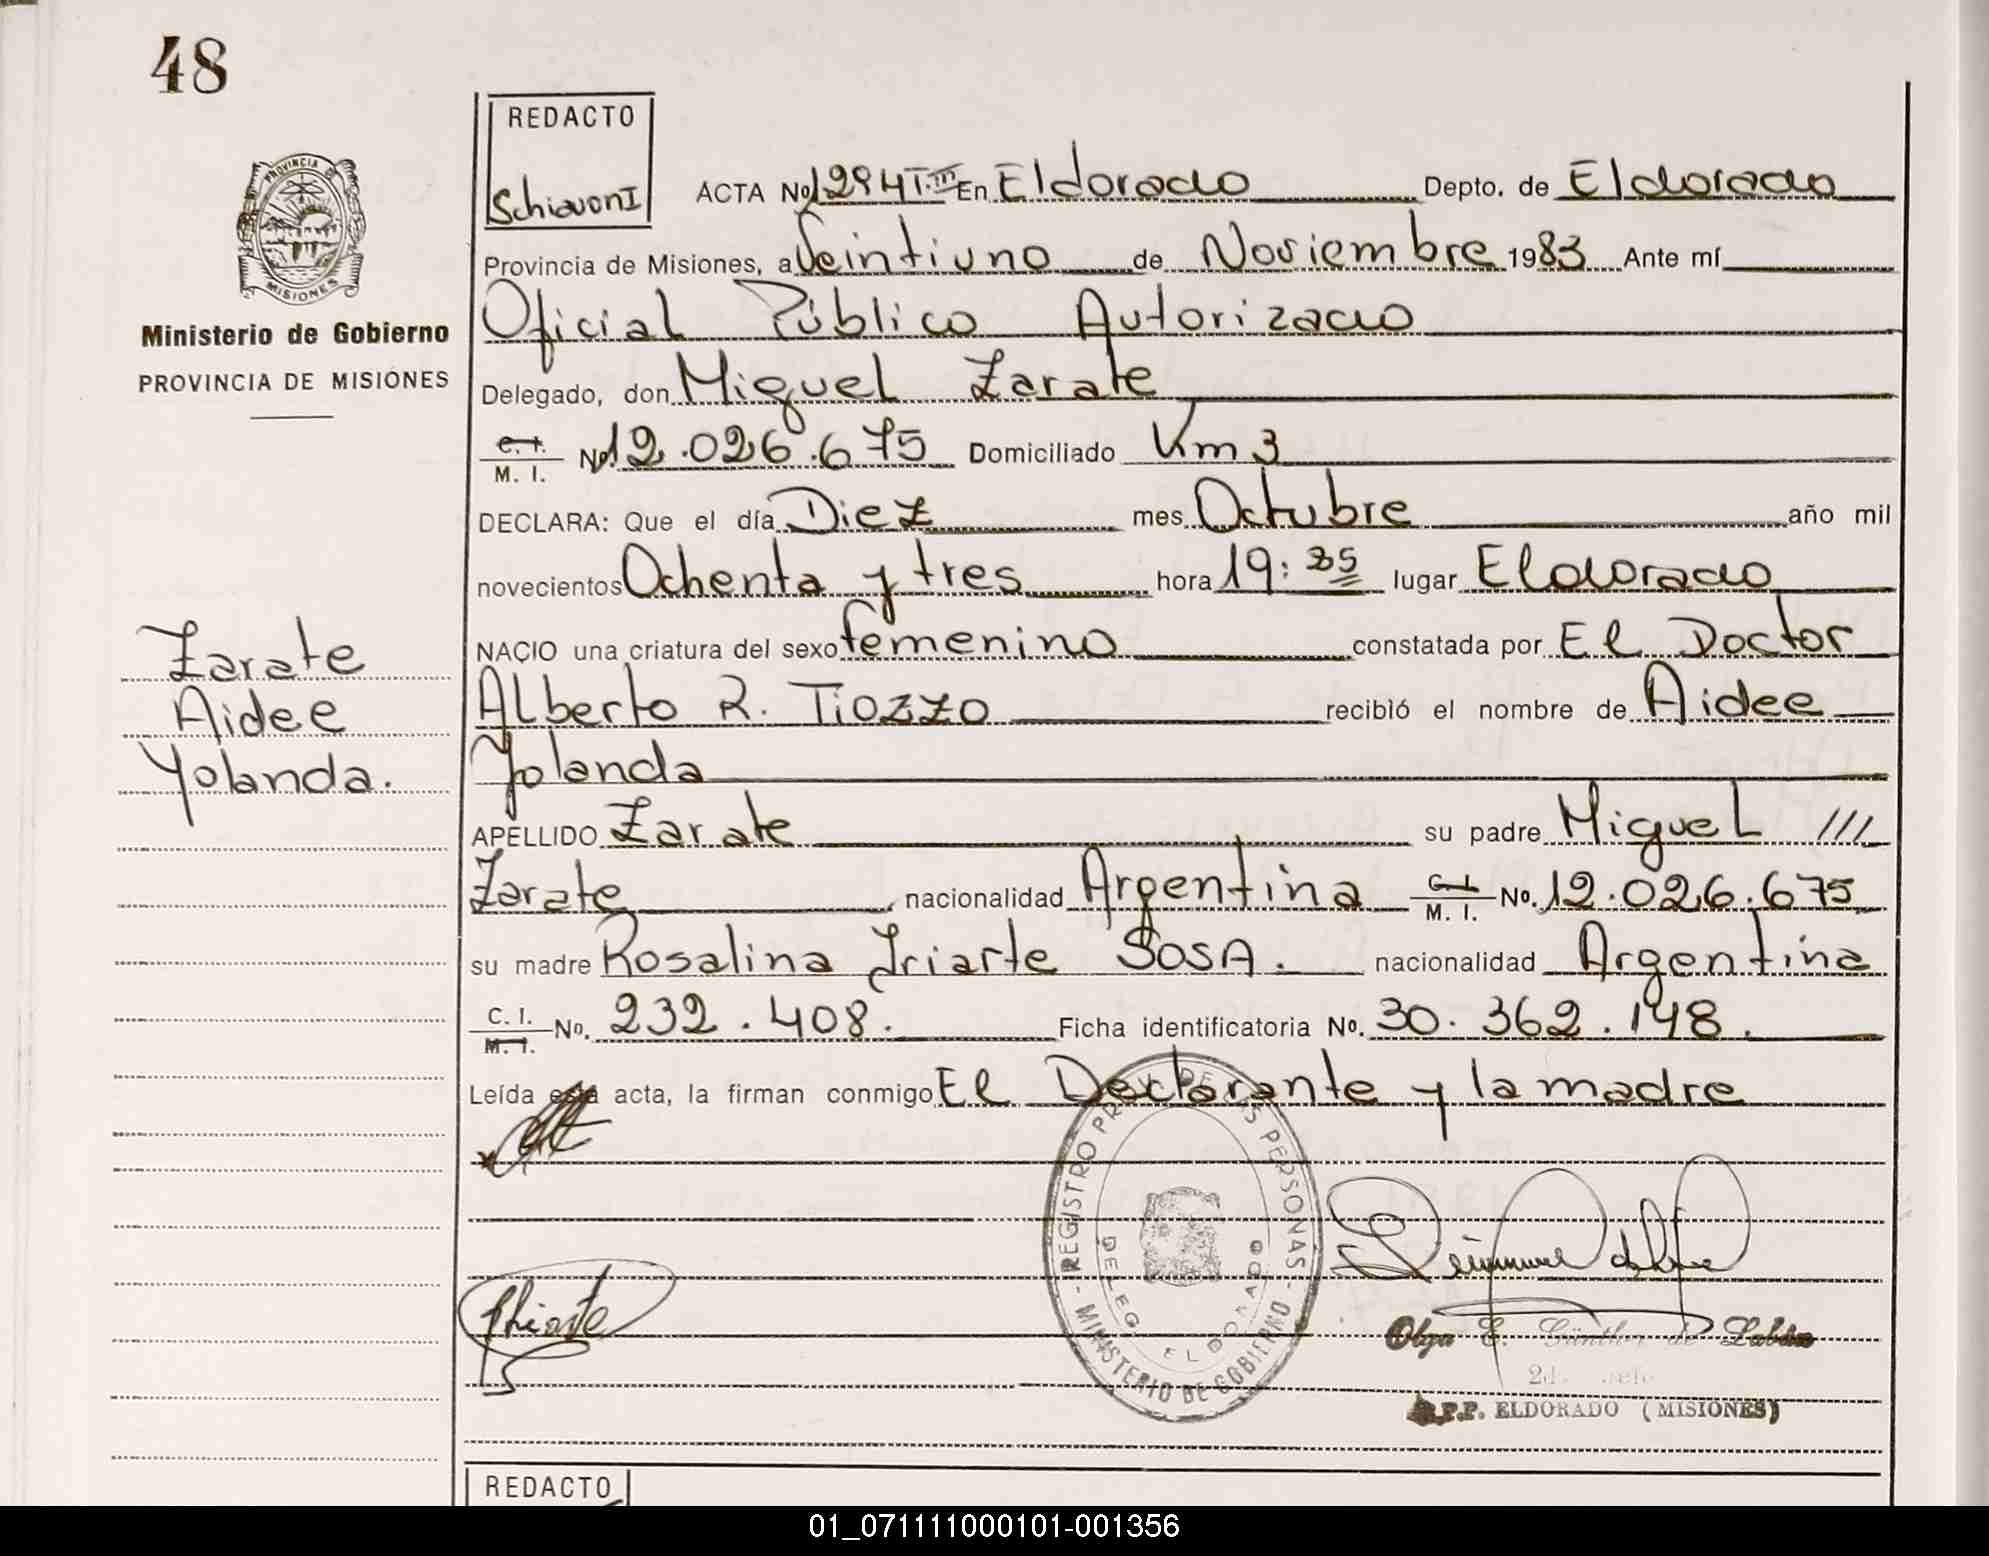 48
REDACTO
Schiavoni
PROVINCIA
MISIONES
Ministerio de Gobierno
PROVINCIA DE MISIONES
Zarate
Aidee
Yolanda.
ACTA No 1294 T.III En Eldorado Depto. de Eldorado
Provincia de Misiones, a Veintiuno de Noviembre 1983 Ante mí
Oficial Público Autorizado
Delegado, don Miguel Zarate
C. I. M. I. No 12.026.675 Domiciliado Km 3
DECLARA: Que el día Diez mes Octubre año mil
novecientos Ochenta y tres hora 19:35 lugar Eldorado
NACIO una criatura del sexo femenino constatada por El Doctor
Alberto R. Tiozzo recibió el nombre de Aidee
Yolanda
APELLIDO Zarate su padre Miguel ///
Zarate nacionalidad Argentina C. I. M. I. No. 12.026.675
su madre Rosalina Iriarte SOSA. nacionalidad Argentina
C. I. M. I. No. 232.408. Ficha identificatoria No. 30.362.148.
Leída esta acta, la firman conmigo El Declarante y la madre
REGISTRO PROV. DE LAS PERSONAS - MINISTERIO DE GOBIERNO -
DELEG. ELDORADO
Olga E. Günther de
R.P.P. ELDORADO (MISIONES)
REDACTO
01_071111000101-001356